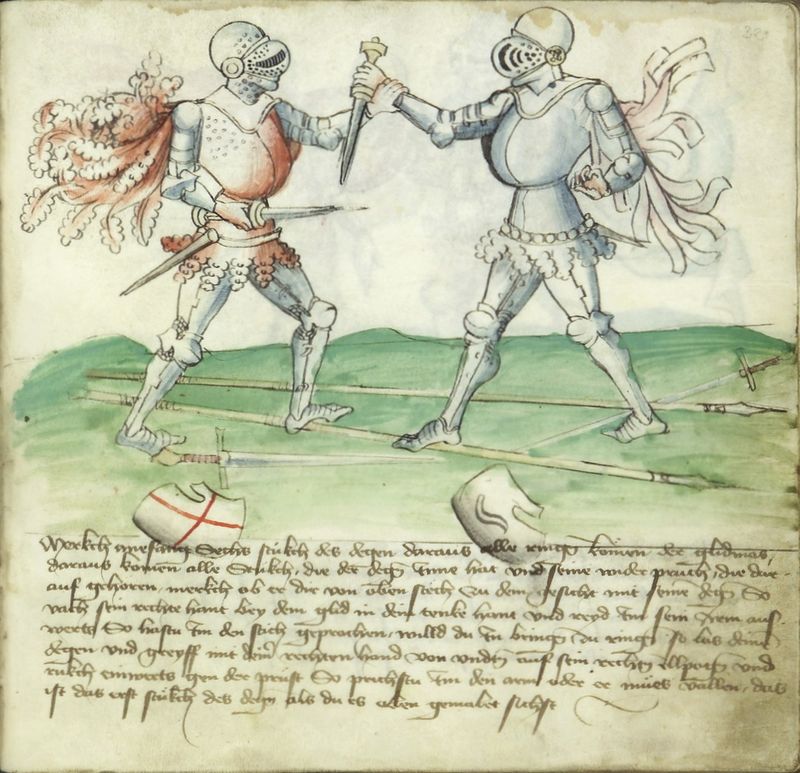 Merkch anefang Sechs stukch des degen daraus alle ring komen der glidmas
daraus komen alle Stukch, die der deg Inne hat und seine wider pruch, die dar
auf gehoren, merkch ob er dir von oben stech zu dem gesicht mit seine deg So
vach sein rechte hant bey dem glid in dein tenke hant und reyd Im sein Arem aus
werts So hastu Im den stich geprochen, willd du In bring zu ring so las deine
degen und greyff mit deine rechten hand von undn auf sein rechn ellpog und
rukch einwerts gen der prust So prichstu Im den arm oder er mues vallen, das
ist das erst stukch des deg als du es oben gemalet sichst